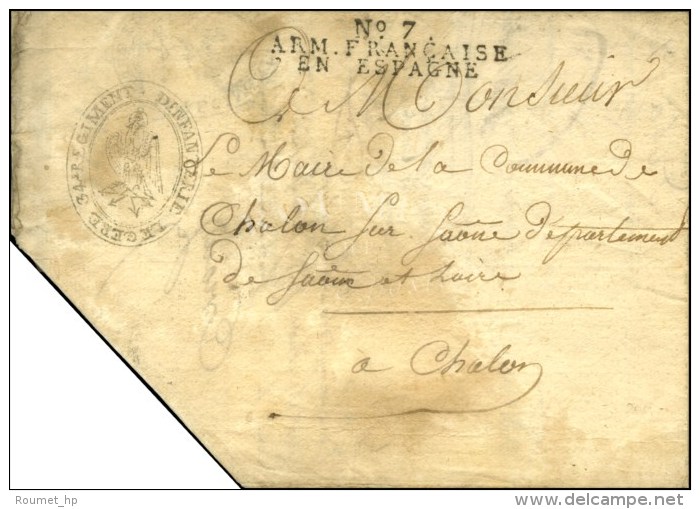 No 7.
ARM. FRANÇAISE
EN ESPAGNE
34me REGIMENT D'INFANTERIE LEGERE
A Monsieur
Le Maire de la Commune de
Chalon Sur Saône département
de Saône et Loire
à Chalon
Roumet_hp
©delcampe.net